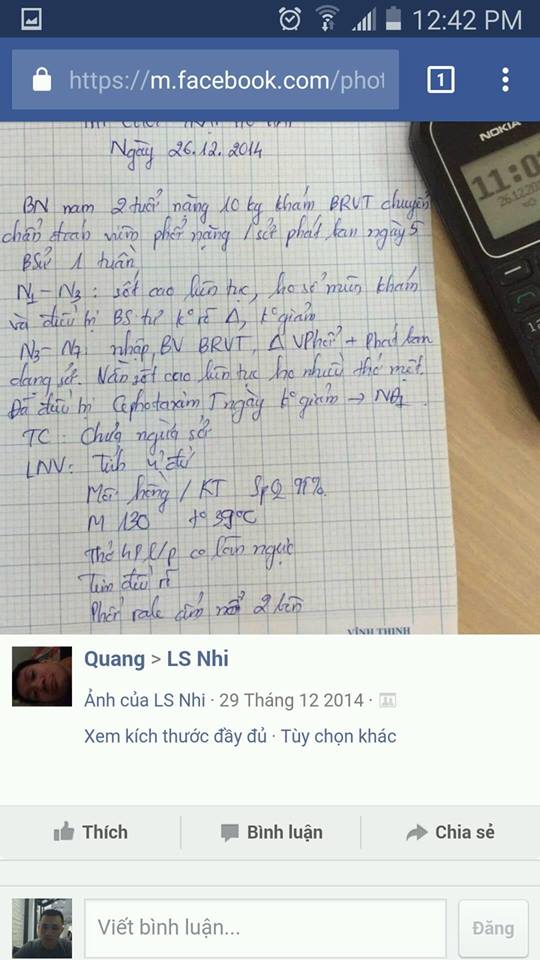 12:42 PM
https://m.facebook.com/phot
1
NOKIA
11:0
26.12.20
Ngày 26.12.2014
BN nam 2 tuổi nặng 10 kg khám BRVT chuyển
chẩn đoán viêm phổi nặng / sởi phát ban ngày 5
BSử 1 tuần
N1 - N3 : sốt cao liên tục, ho sổ mũi khám
và điều trị BS tư k° rõ Δ, k° giảm
N3 - N7: nhập BV BRVT, Δ VPhổi + Phát ban
dạng sởi. Vẫn sốt cao liên tục ho nhiều thở mệt.
Đã điều trị Cephotaxim ngày k° giảm → NĐ1.
TC : Chưa ngừa sởi
LNV: Tỉnh
Môi hồng / KT SpO2 95%
M 130 t° 39°C
Thở 48 l/p co lõm ngực
Tim đều rõ
Phổi rale ẩm nổ 2 bên
VĨNH THỊNH
Quang > LS Nhi
Ảnh của LS Nhi · 29 Tháng 12 2014 ·
Xem kích thước đầy đủ · Tùy chọn khác
Thích
Bình luận
Chia sẻ
Viết bình luận...
Đăng